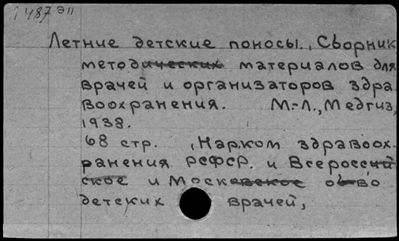 1487 эп
Летние детские поносы., Сборник
методических материалов для
врачей и организаторов здра
воохранения. М.-Л., Медгиз,
1938.
68 стр. , Нарком здравоох-
ранения РСФСР. и Всероссий
ское и Московское о-во
детских врачей,